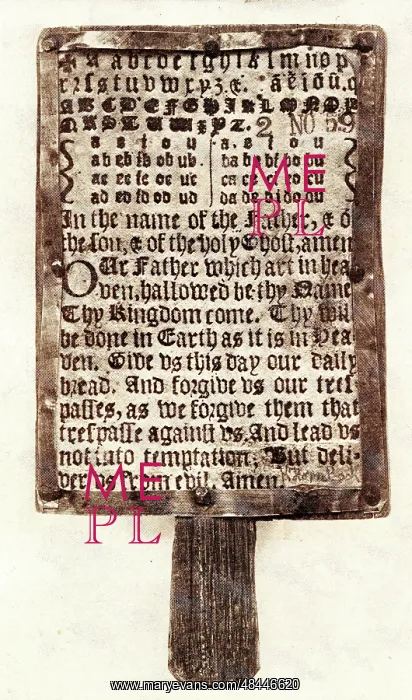 A a b c d e f g h i k l m n o p
q r s t u v w x y z &. ã ẽ ĩ õ ũ.
A B C D E F G H I K L M N O P
Q R S T U W X Y Z. 2 No 59
a e i o u a e i o u
ab eb ib ob ub ba be bi bo bu
ac ec ic oc uc ca ce ci co cu
ad ed id od ud da de di do du
In the name of the Father, & of
the ſon, & of the holy Ghoſt, amen
OUr Father which art in hea
ven, hallowed be thy Name
Thy Kingdom come. Thy will
be done in Earth as it is in Hea
ven. Give vs this day our daily
bread. And forgive vs our treſ
paſſes, as we forgive them that
treſpaſſe againſt vs. And lead vs
not into temptation; But deli-
ver vs from evil. Amen
ME
PL
ME
PL
www.maryevans.com/48446620